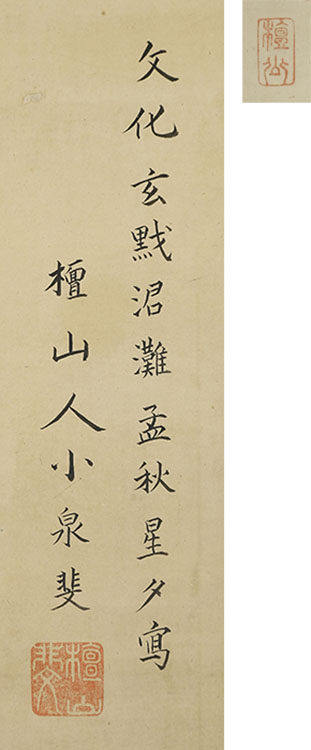 文化玄黓涒灘孟秋星夕寫
檀山人小泉斐
檀山
斐
檀山